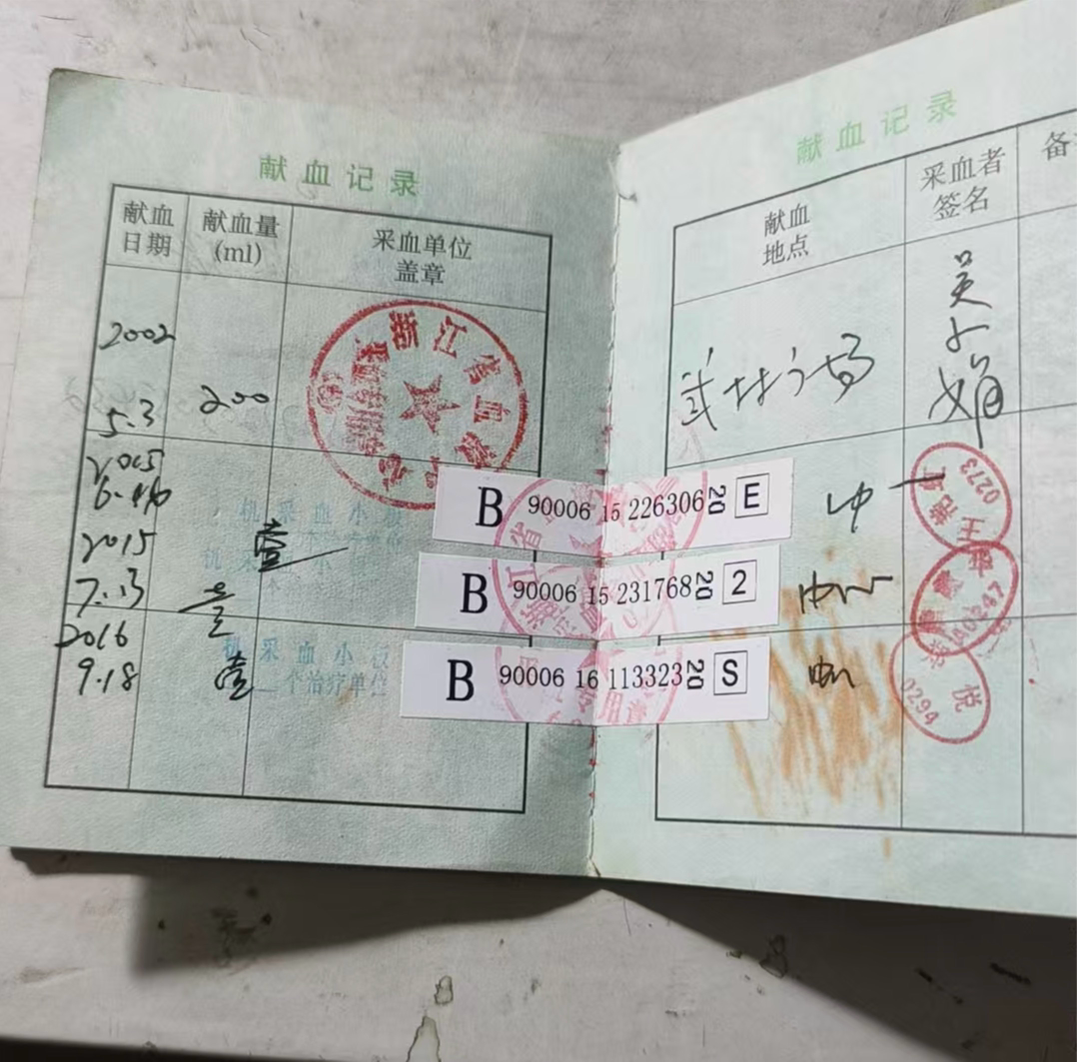 献血记录
献血日期
献血量(ml)
采血单位盖章
2002
5.3
200
浙江省血液中心
2015
2015
7.13
壹
壹
2016
9.18
壹
机采血小板
机采血小板
个治疗单位
B 90006 15 226306 20 E
B 90006 15 231768 20 2
B 90006 16 113323 20 S
献血记录
献血地点
采血者签名
备
武林广场
吴小娟
中
中心
中心
0273
王
0294
悦